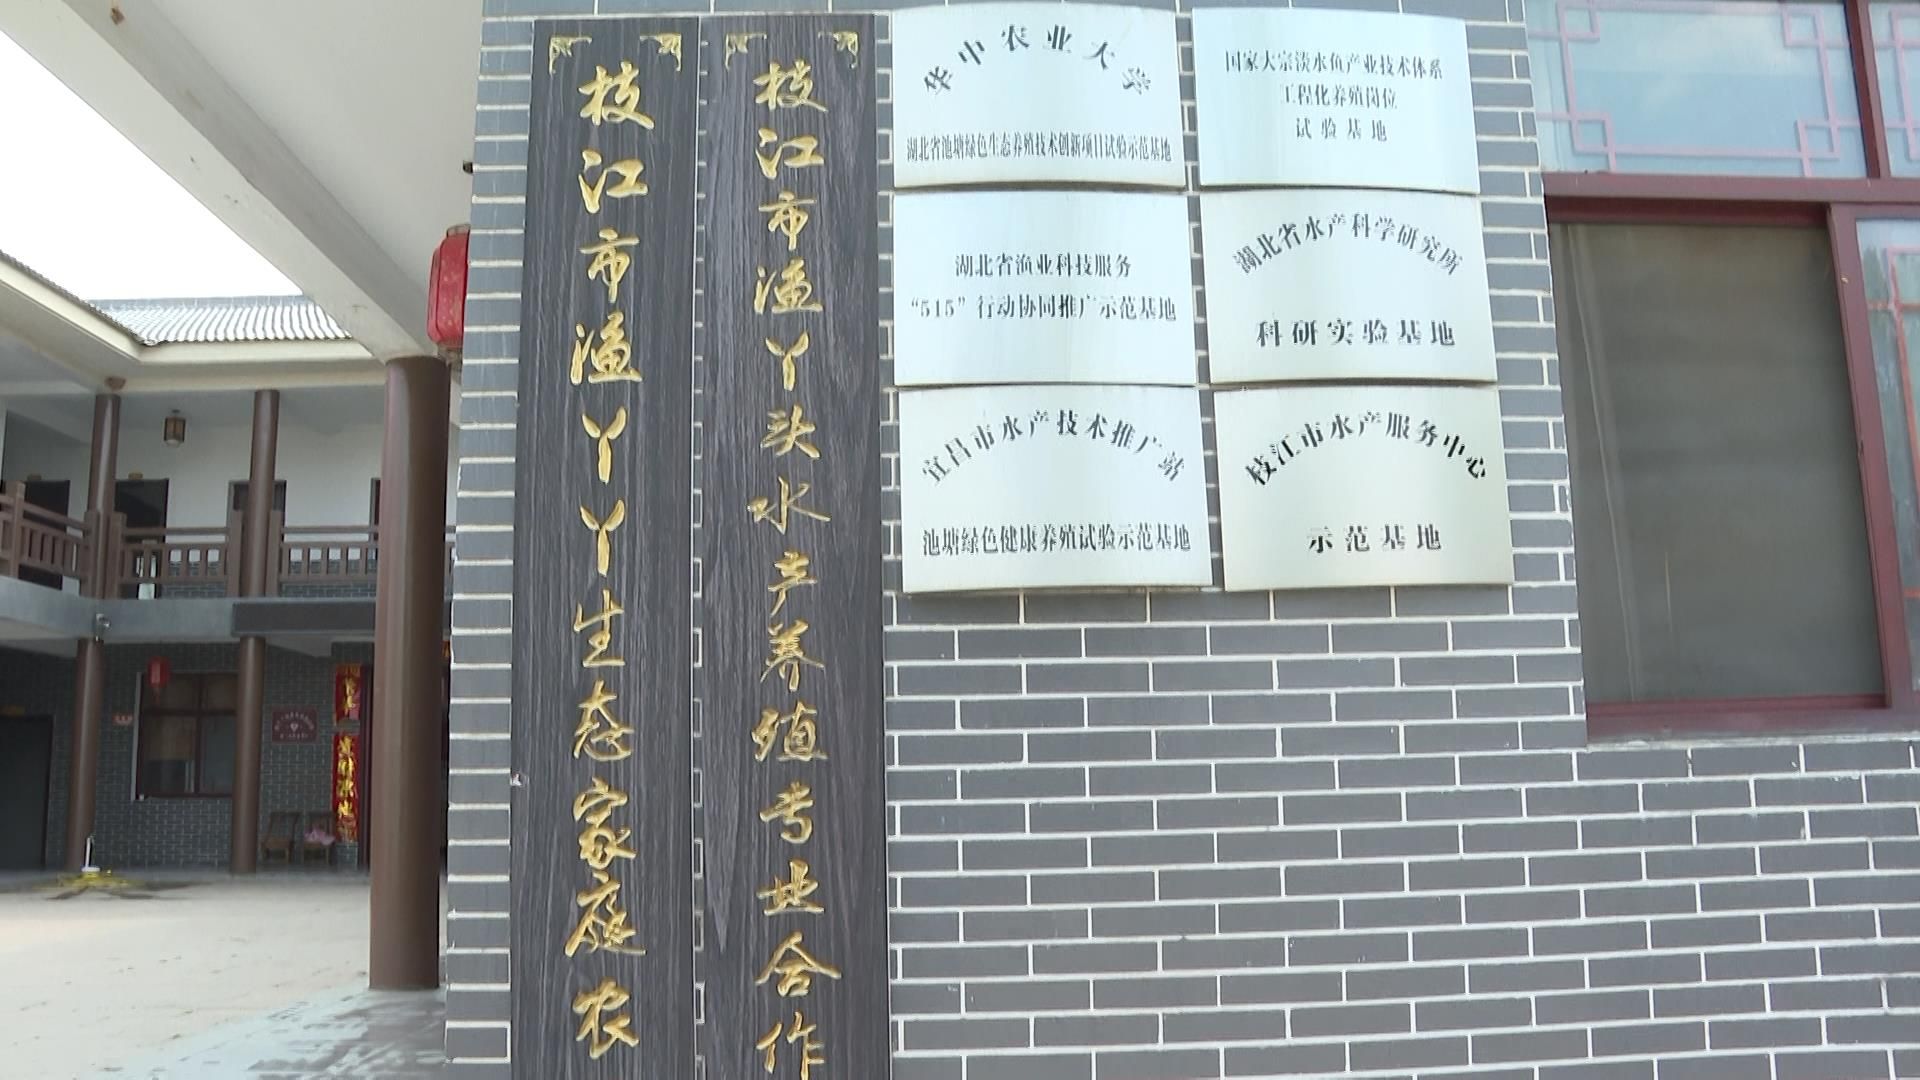 枝江市渔丫丫生态家庭农
枝江市渔丫头水产养殖专业合作
华中农业大学
湖北省池塘绿色生态养殖技术创新项目试验示范基地
国家大宗淡水鱼产业技术体系
工程化养殖岗位
试验基地
湖北省渔业科技服务
“515”行动协同推广示范基地
湖北省水产科学研究所
科研实验基地
宜昌市水产技术推广站
池塘绿色健康养殖试验示范基地
枝江市水产服务中心
示范基地